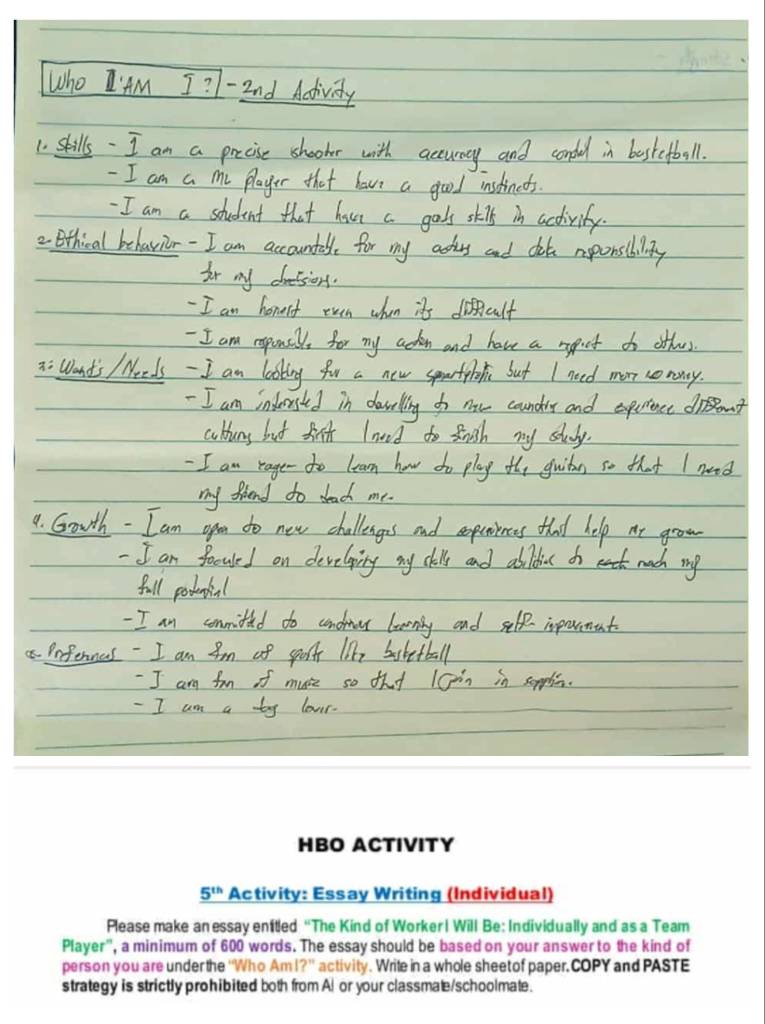 Who I'AM I? - 2nd Activity
1. Skills - I am a precise shooter with accuracy and control in basketball.
- I am a ML player that have a good instincts.
- I am a student that have a goods skills in activity.
2. Ethical behavior - I am accountable for my actions and take responsibility
for my decisions.
- I am honest even when its difficult
- I am responsible for my action and have a respect to others.
3. Wants/Needs - I am looking for a new smartphone but I need more money.
- I am interested in travelling to new country and experience different
cultures but firsts I need to finish my study.
- I am eager to learn how to play the guitar, so that I need
my friend to teach me.
4. Growth - I am open to new challenges and experiences that help me grow
- I am focused on developing my skills and abilities to reach my
full potential
- I am committed to continous learning and self-improvement.
Prefernces - I am fan of sports like basketball
- I am fan of music so that I in
- I am a lover.
HBO ACTIVITY
5th Activity: Essay Writing (Individual)
Please make an essay entitled "The Kind of Worker I Will Be: Individually and as a Team
Player", a minimum of 600 words. The essay should be based on your answer to the kind of
person you are under the "Who Am I?" activity. Write in a whole sheet of paper. COPY and PASTE
strategy is strictly prohibited both from AI or your classmate/schoolmate.